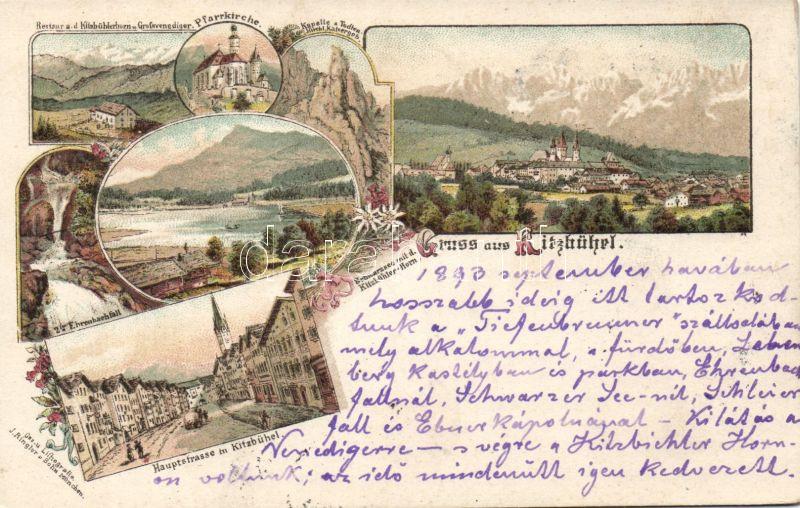 Restaur. a. d. Kitzbühlerhorn u. Grossvenediger.
Pfarrkirche.
Kapelle a. Todten
Kaisergeb.
2ter Ehrenbachfall
Schwarzsee mit d.
Kitzbühler-Horn
Gruss aus Kitzbühel.
Hauptstrasse in Kitzbühel.
Des. u. Lithografie
J. Ringler u. Sohn München.
darabanth
1893 september havában
hosszabb ideig itt tartozkod-
tunk a „Tiefenbrunner" szállodában
mely alkalommal, a fürdőben, Leben
berg kastélyban és parkban, Ehrenbach
fallnál, Schwarzer See-nél, Schleier
fall és Ebner kápolnánál - Kilátás a
Venedigerre - s végre a Kitzbichler Horn-
on voltunk; az idő mindenütt igen kedvezett.